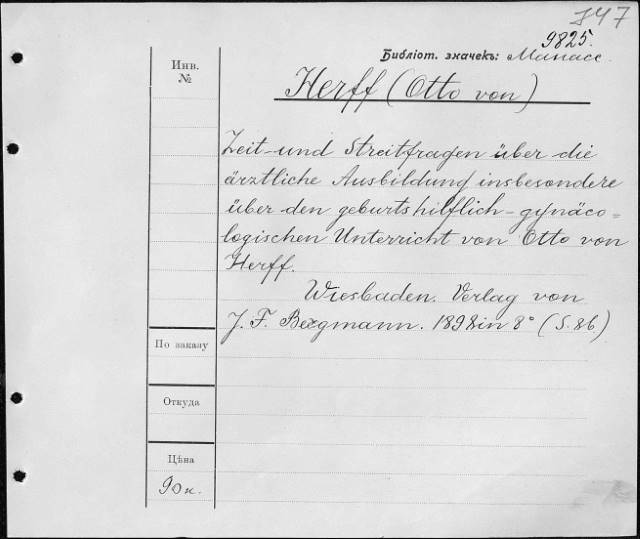 J47
9825.
Библіот. значекъ: Манасс.
Инв.
№
Herff (Otto von)
Zeit- und Streitfragen über die
ärztliche Ausbildung insbesondere
über den geburtshilflich-gynäco=
logischen Unterricht von Otto von
Herff.
Wiesbaden. Verlag von
J. F. Bergmann. 1898 in 8° (S. 86.)
По заказу
Откуда
Цѣна
90 к.